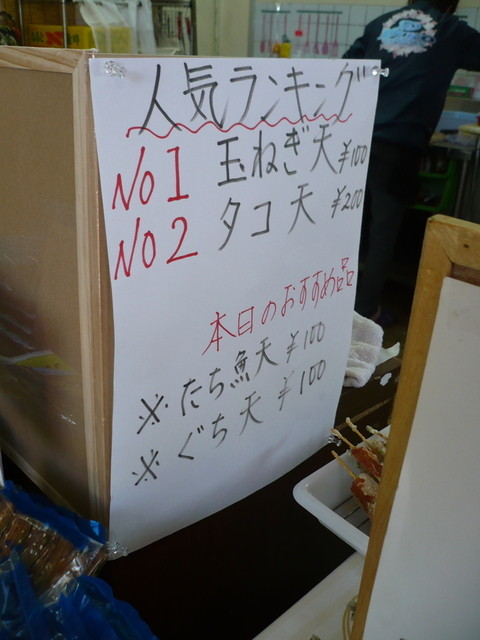 人気ランキング
No1 玉ねぎ天 ¥100
No2 タコ天 ¥200
本日のおすすめ品
※たち魚天 ¥100
※ぐち天 ¥100